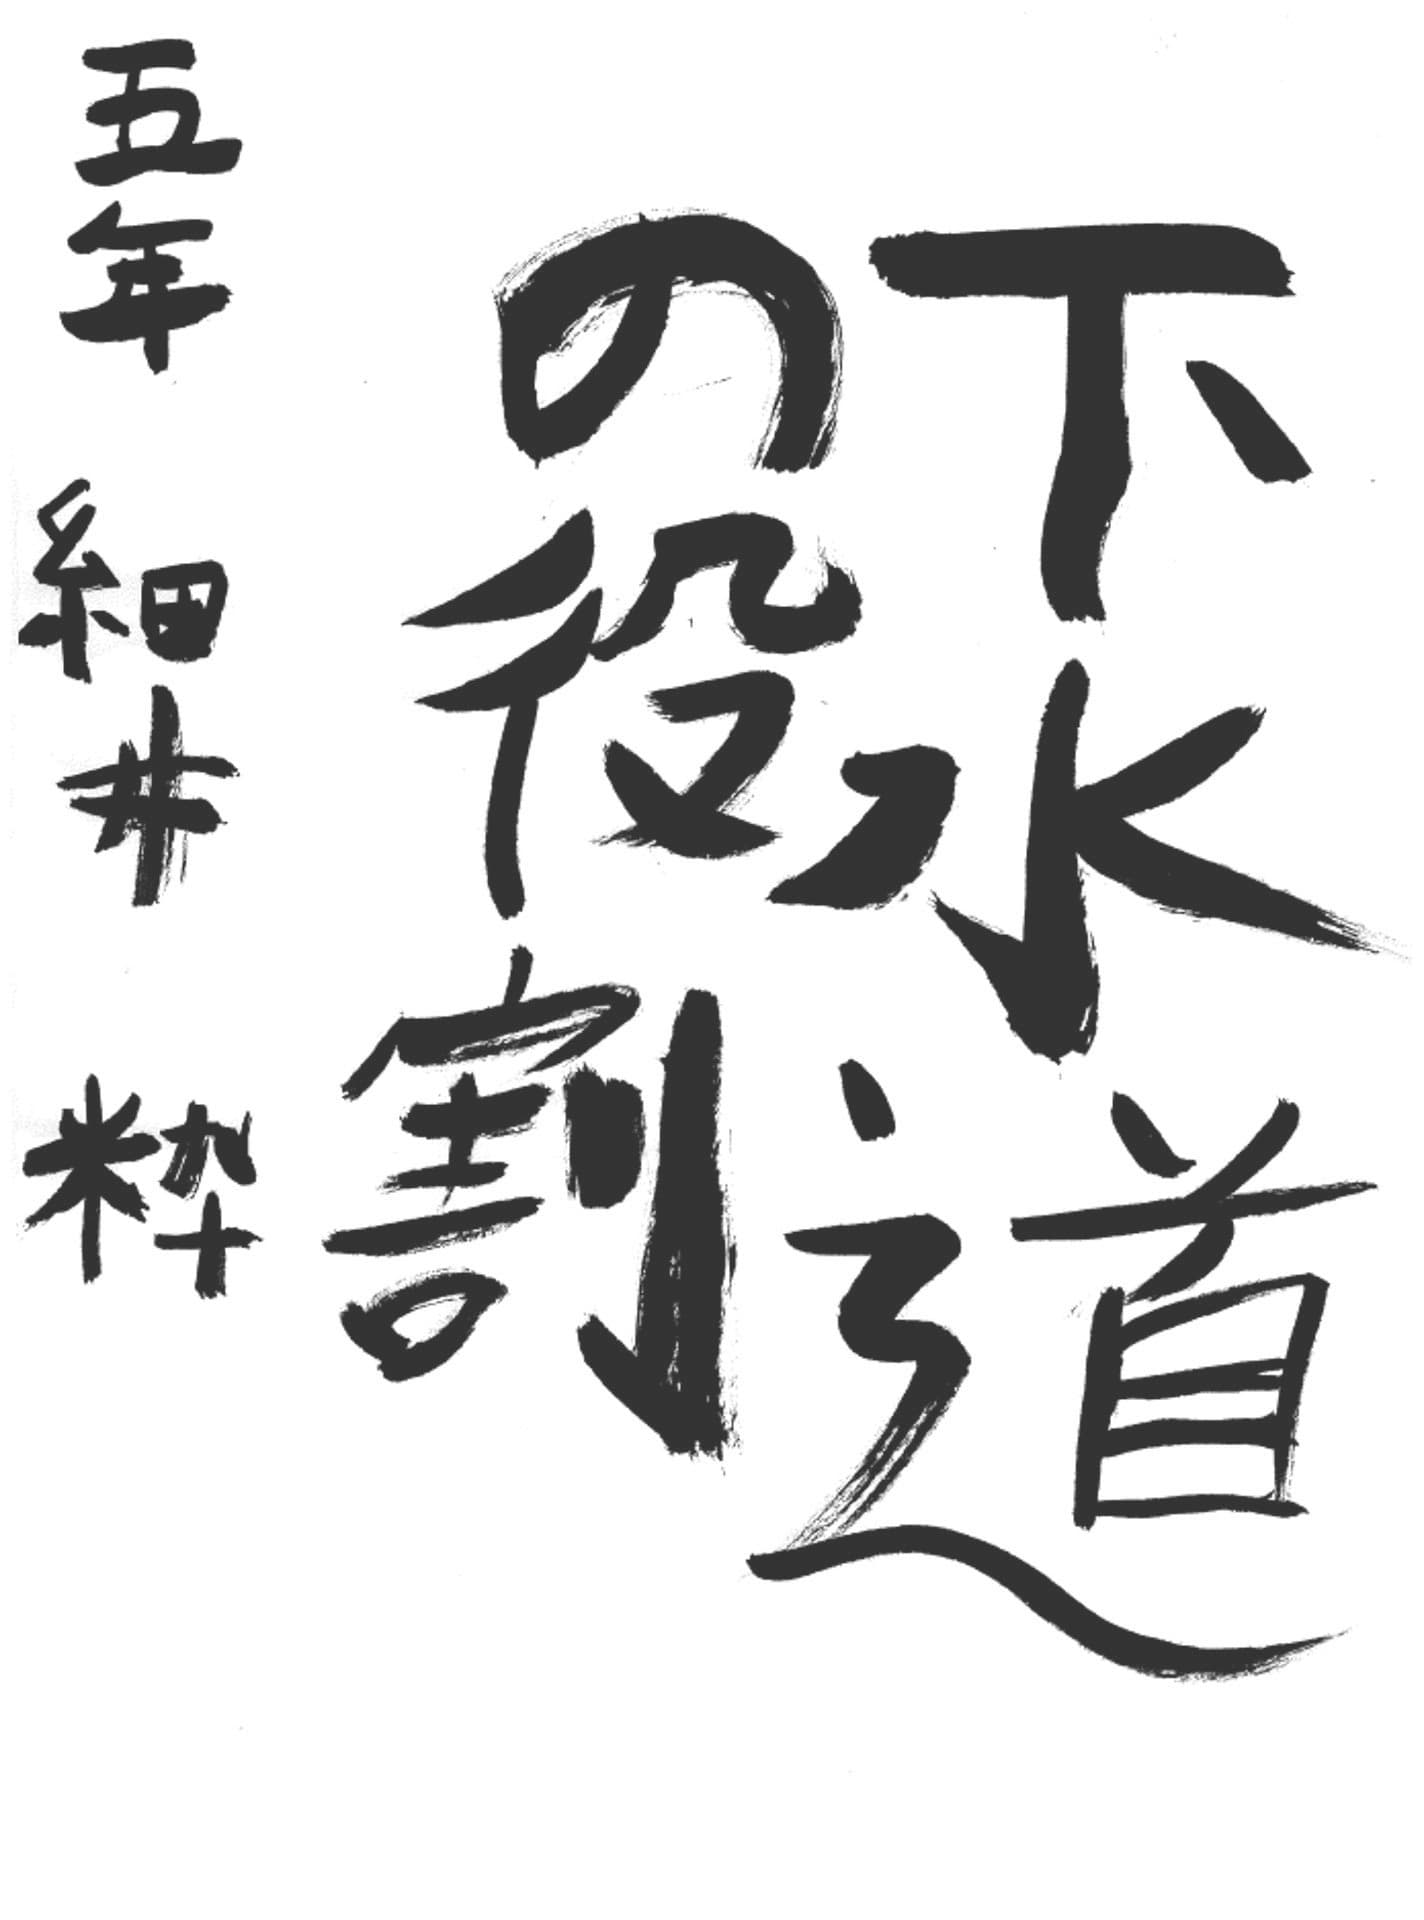 下水道
の役割
五年 細井 粋